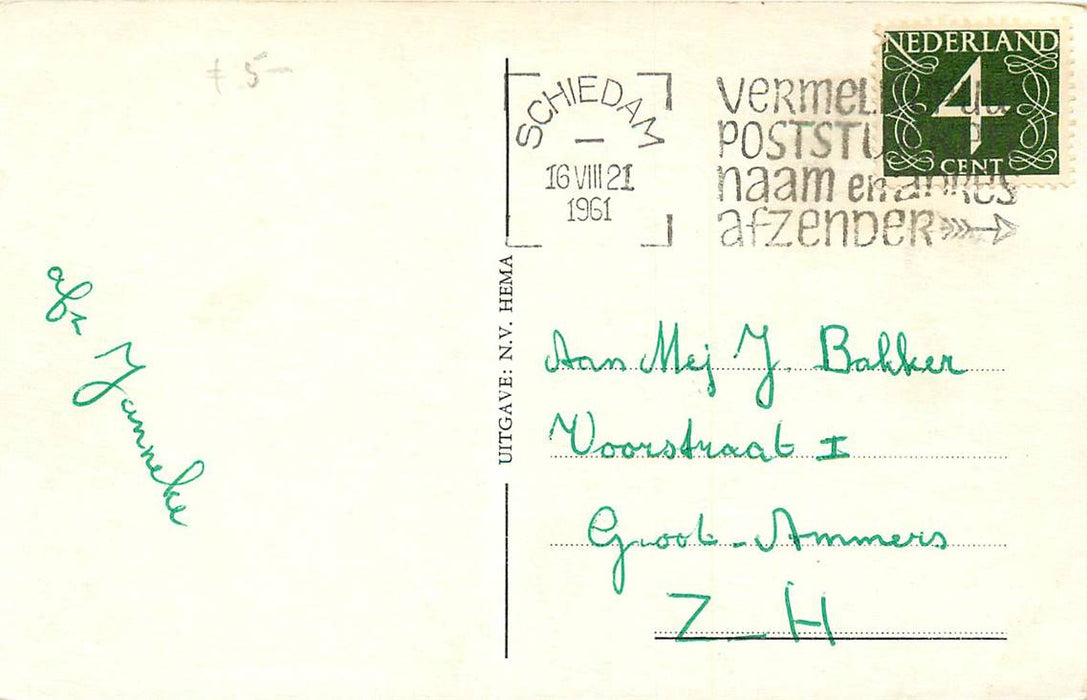 f 5-
SCHIEDAM
16 VIII 21
1961
VERMELD
POSTSTUK
naam en adres
afzender
NEDERLAND
4
CENT
UITGAVE: N.V. HEMA
afz Janneke
Aan Mej J. Bakker
Voorstraat I
Groot-Ammers
Z-H